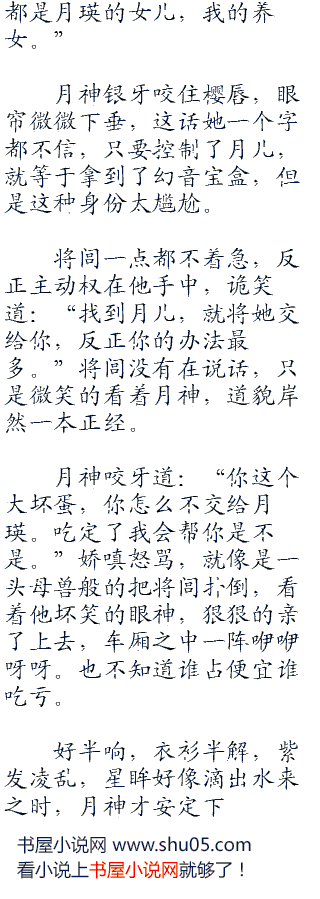 都是月瑛的女儿，我的养
女。”
月神银牙咬住樱唇，眼
帘微微下垂，这话她一个字
都不信，只要控制了月儿，
就等于拿到了幻音宝盒，但
是这种身份太尴尬。
将闾一点都不着急，反
正主动权在他手中，诡笑
道：“找到月儿，就将她交
给你，反正你的办法最
多。”将闾没有在说话，只
是微笑的看着月神，道貌岸
然一本正经。
月神咬牙道：“你这个
大坏蛋，你怎么不交给月
瑛。吃定了我会帮你是不
是。”娇嗔怒骂，就像是一
头母兽般的把将闾扑倒，看
着他坏笑的眼神，狠狠的亲
了上去，车厢之中一阵咿咿
呀呀。也不知道谁占便宜谁
吃亏。
好半响，衣衫半解，紫
发凌乱，星眸好像滴出水来
之时，月神才安定下
书屋小说网 www.shu05.com
看小说上书屋小说网就够了！